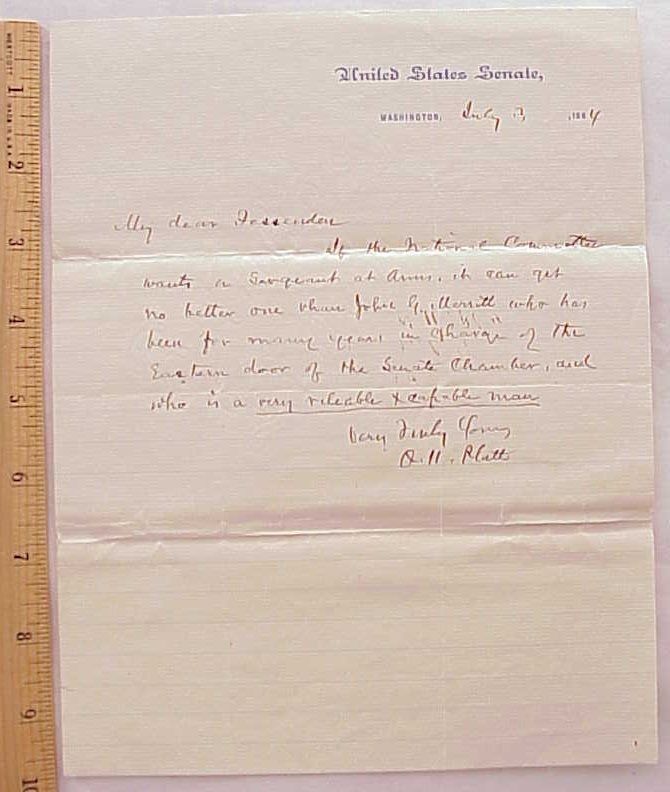 United States Senate,
WASHINGTON, July 3, 1884
My dear Fessenden
If the National Committee
wants a Sergeant at Arms, it can get
no better one than John G. Merrill who has
been for many years "in charge" of the
Eastern door of the Senate Chamber, and
who is a very reliable & capable man
Very Truly Yours
O. H. Platt
1
2
3
4
5
6
7
8
9
10